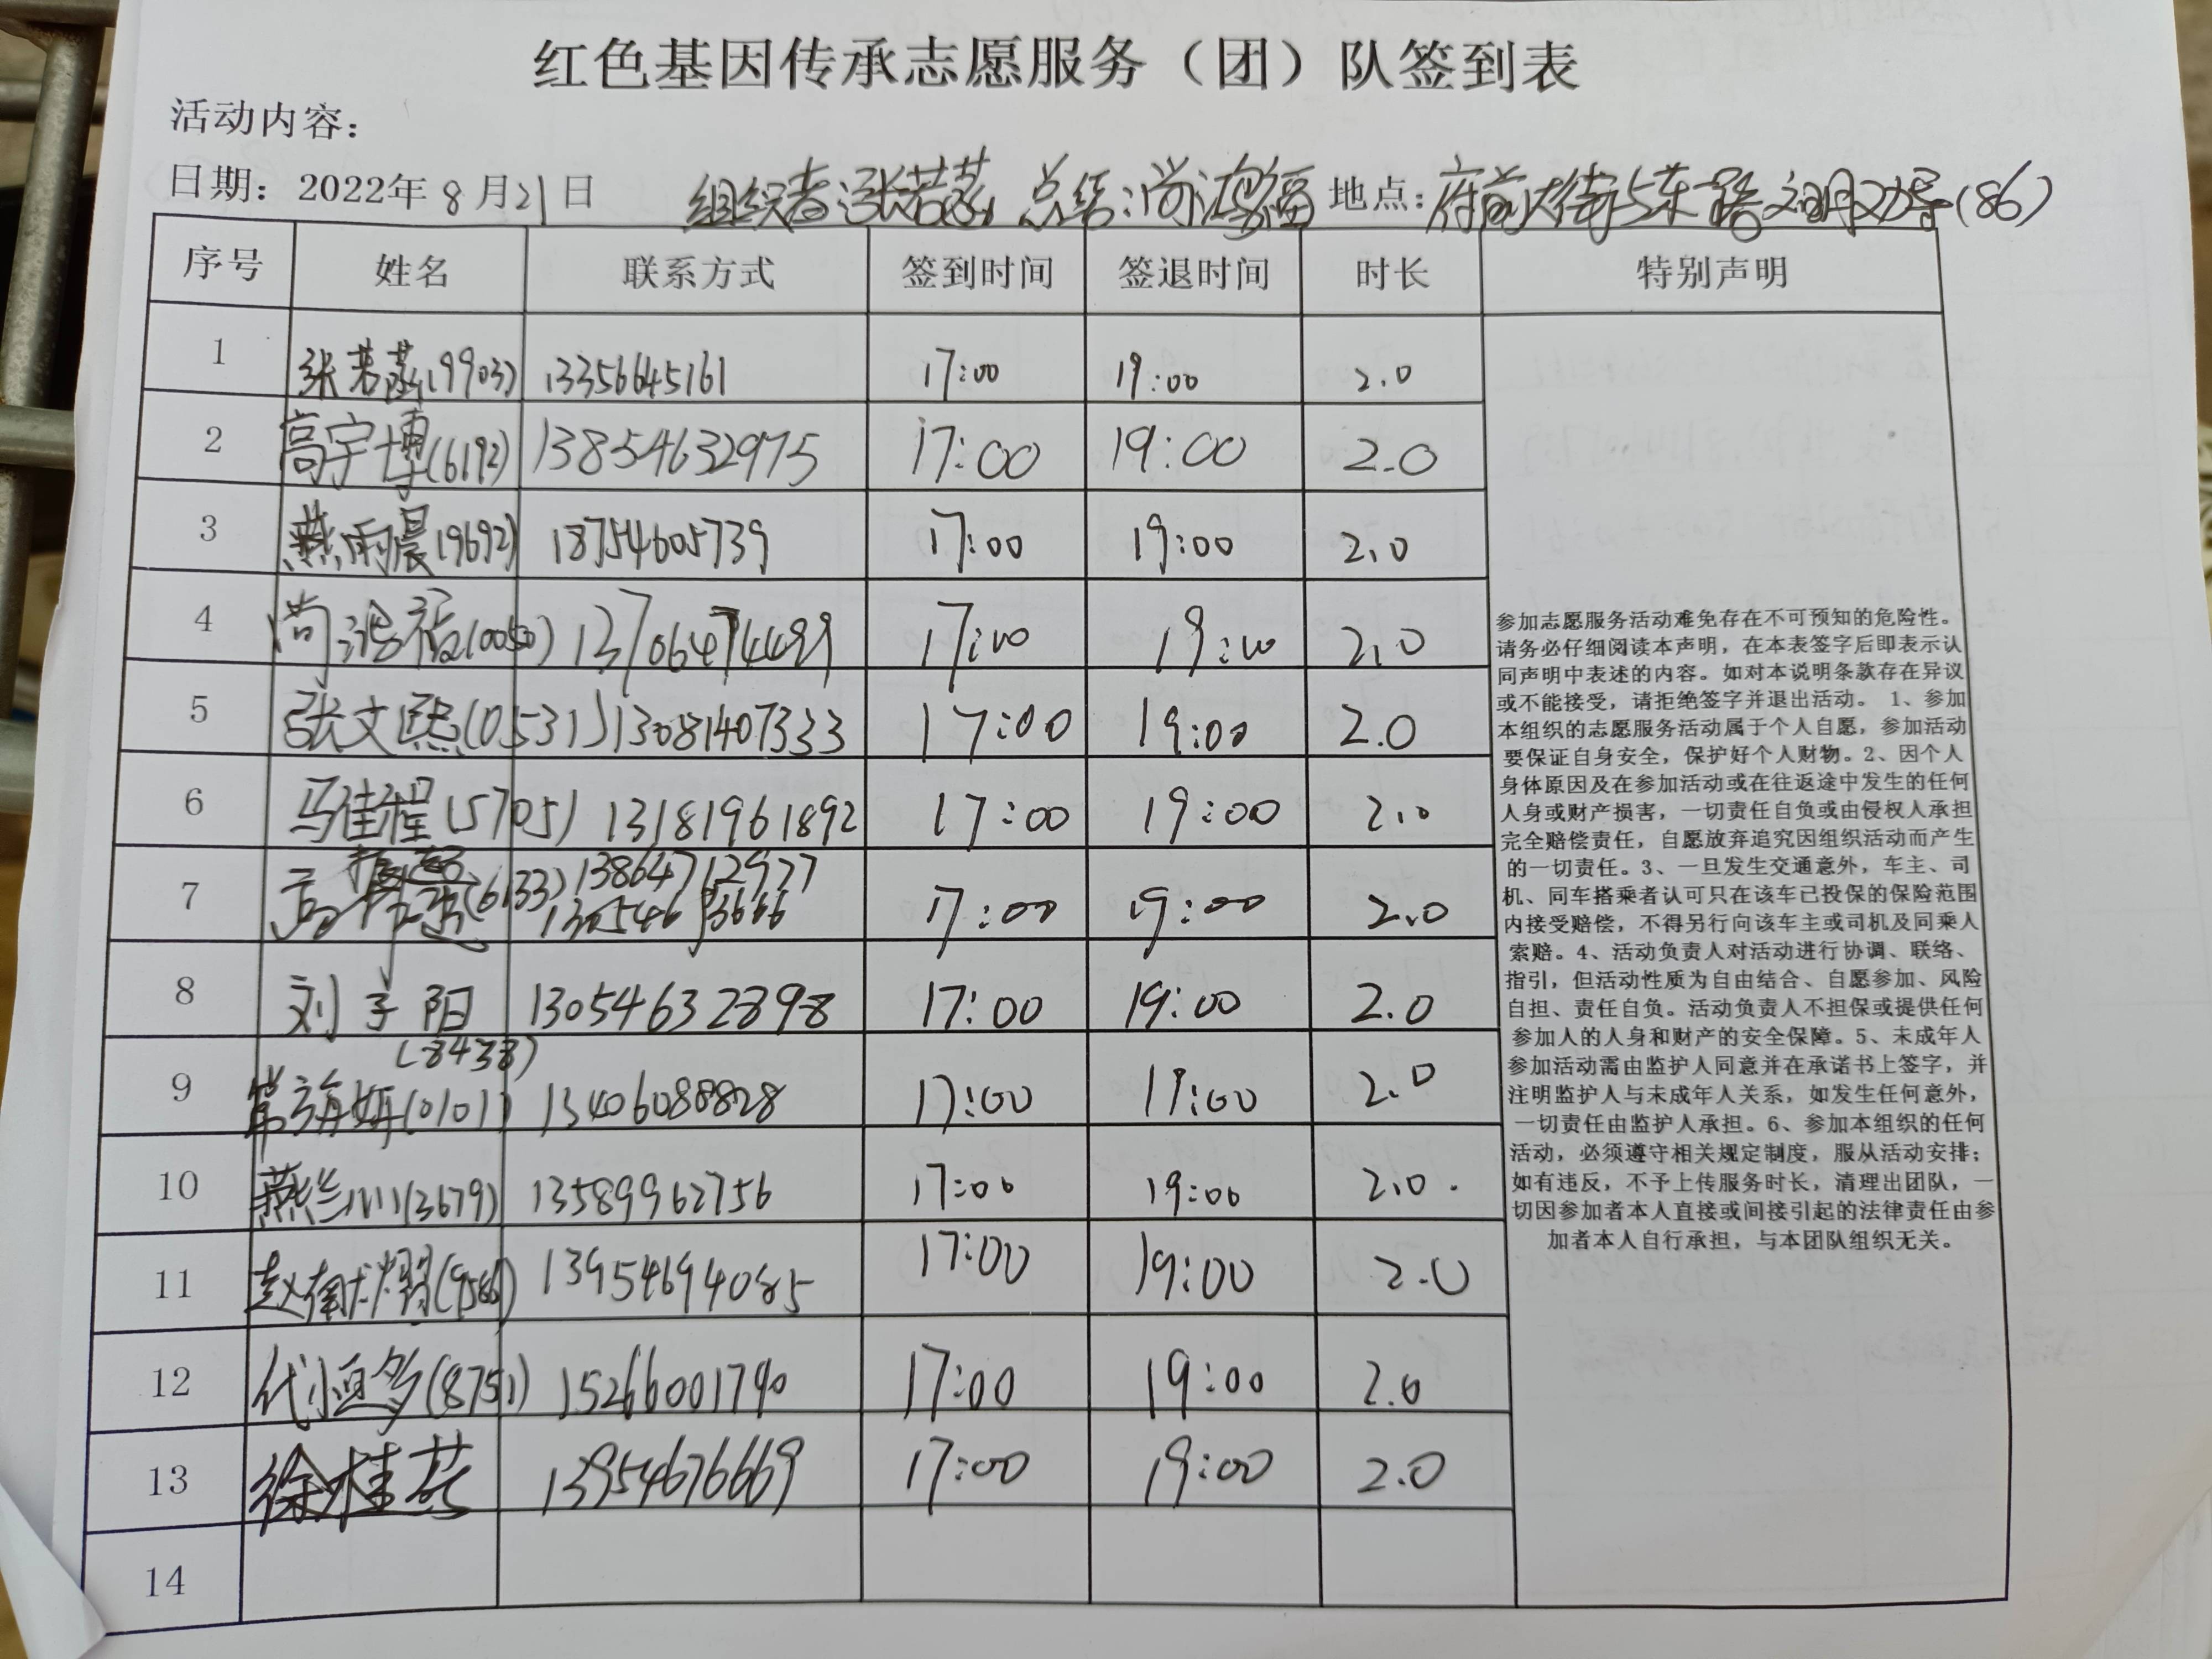 红色基因传承志愿服务（团）队签到表
活动内容：
日期：2022年8月21日 组织者:张若菡 总结:尚鸿福 地点:府前大街与东一路文明劝导(86)
序号 姓名 联系方式 签到时间 签退时间 时长 特别声明
1 张若菡(9903) 13356645161 17:00 19:00 2.0
2 高宇博(6192) 13854632975 17:00 19:00 2.0
3 燕雨晨(9692) 18754605739 17:00 19:00 2.0
4 尚鸿福(0050) 13706474499 17:00 19:00 2.0
5 张文熙(0531) 13081407333 17:00 19:00 2.0
6 马佳程(5705) 13181961892 17:00 19:00 2.0
7 (6133) 13864712977 17:00 19:00 2.0
8 刘子阳 13054632898 17:00 19:00 2.0
(8438)
9 常海妍(0101) 13406088828 17:00 19:00 2.0
10 燕兰川(3679) 13589962756 17:00 19:00 2.0.
11 赵 13954694085 17:00 19:00 2.0
12 代恒多(8751) 15266001790 17:00 19:00 2.0
13 徐桂芸 13954676669 17:00 19:00 2.0
14
参加志愿服务活动难免存在不可预知的危险性。
请务必仔细阅读本声明，在本表签字后即表示认
同声明中表述的内容。如对本说明条款存在异议
或不能接受，请拒绝签字并退出活动。 1、参加
本组织的志愿服务活动属于个人自愿，参加活动
要保证自身安全，保护好个人财物。2、因个人
身体原因及在参加活动或在往返途中发生的任何
人身或财产损害，一切责任自负或由侵权人承担
完全赔偿责任，自愿放弃追究因组织活动而产生
的一切责任。3、一旦发生交通意外，车主、司
机、同车搭乘者认可只在该车已投保的保险范围
内接受赔偿，不得另行向该车主或司机及同乘人
索赔。4、活动负责人对活动进行协调、联络、
指引，但活动性质为自由结合、自愿参加、风险
自担、责任自负。活动负责人不担保或提供任何
参加人的人身和财产的安全保障。5、未成年人
参加活动需由监护人同意并在承诺书上签字，并
注明监护人与未成年人关系，如发生任何意外，
一切责任由监护人承担。6、参加本组织的任何
活动，必须遵守相关规定制度，服从活动安排；
如有违反，不予上传服务时长，清理出团队，一
切因参加者本人直接或间接引起的法律责任由参
加者本人自行承担，与本团队组织无关。